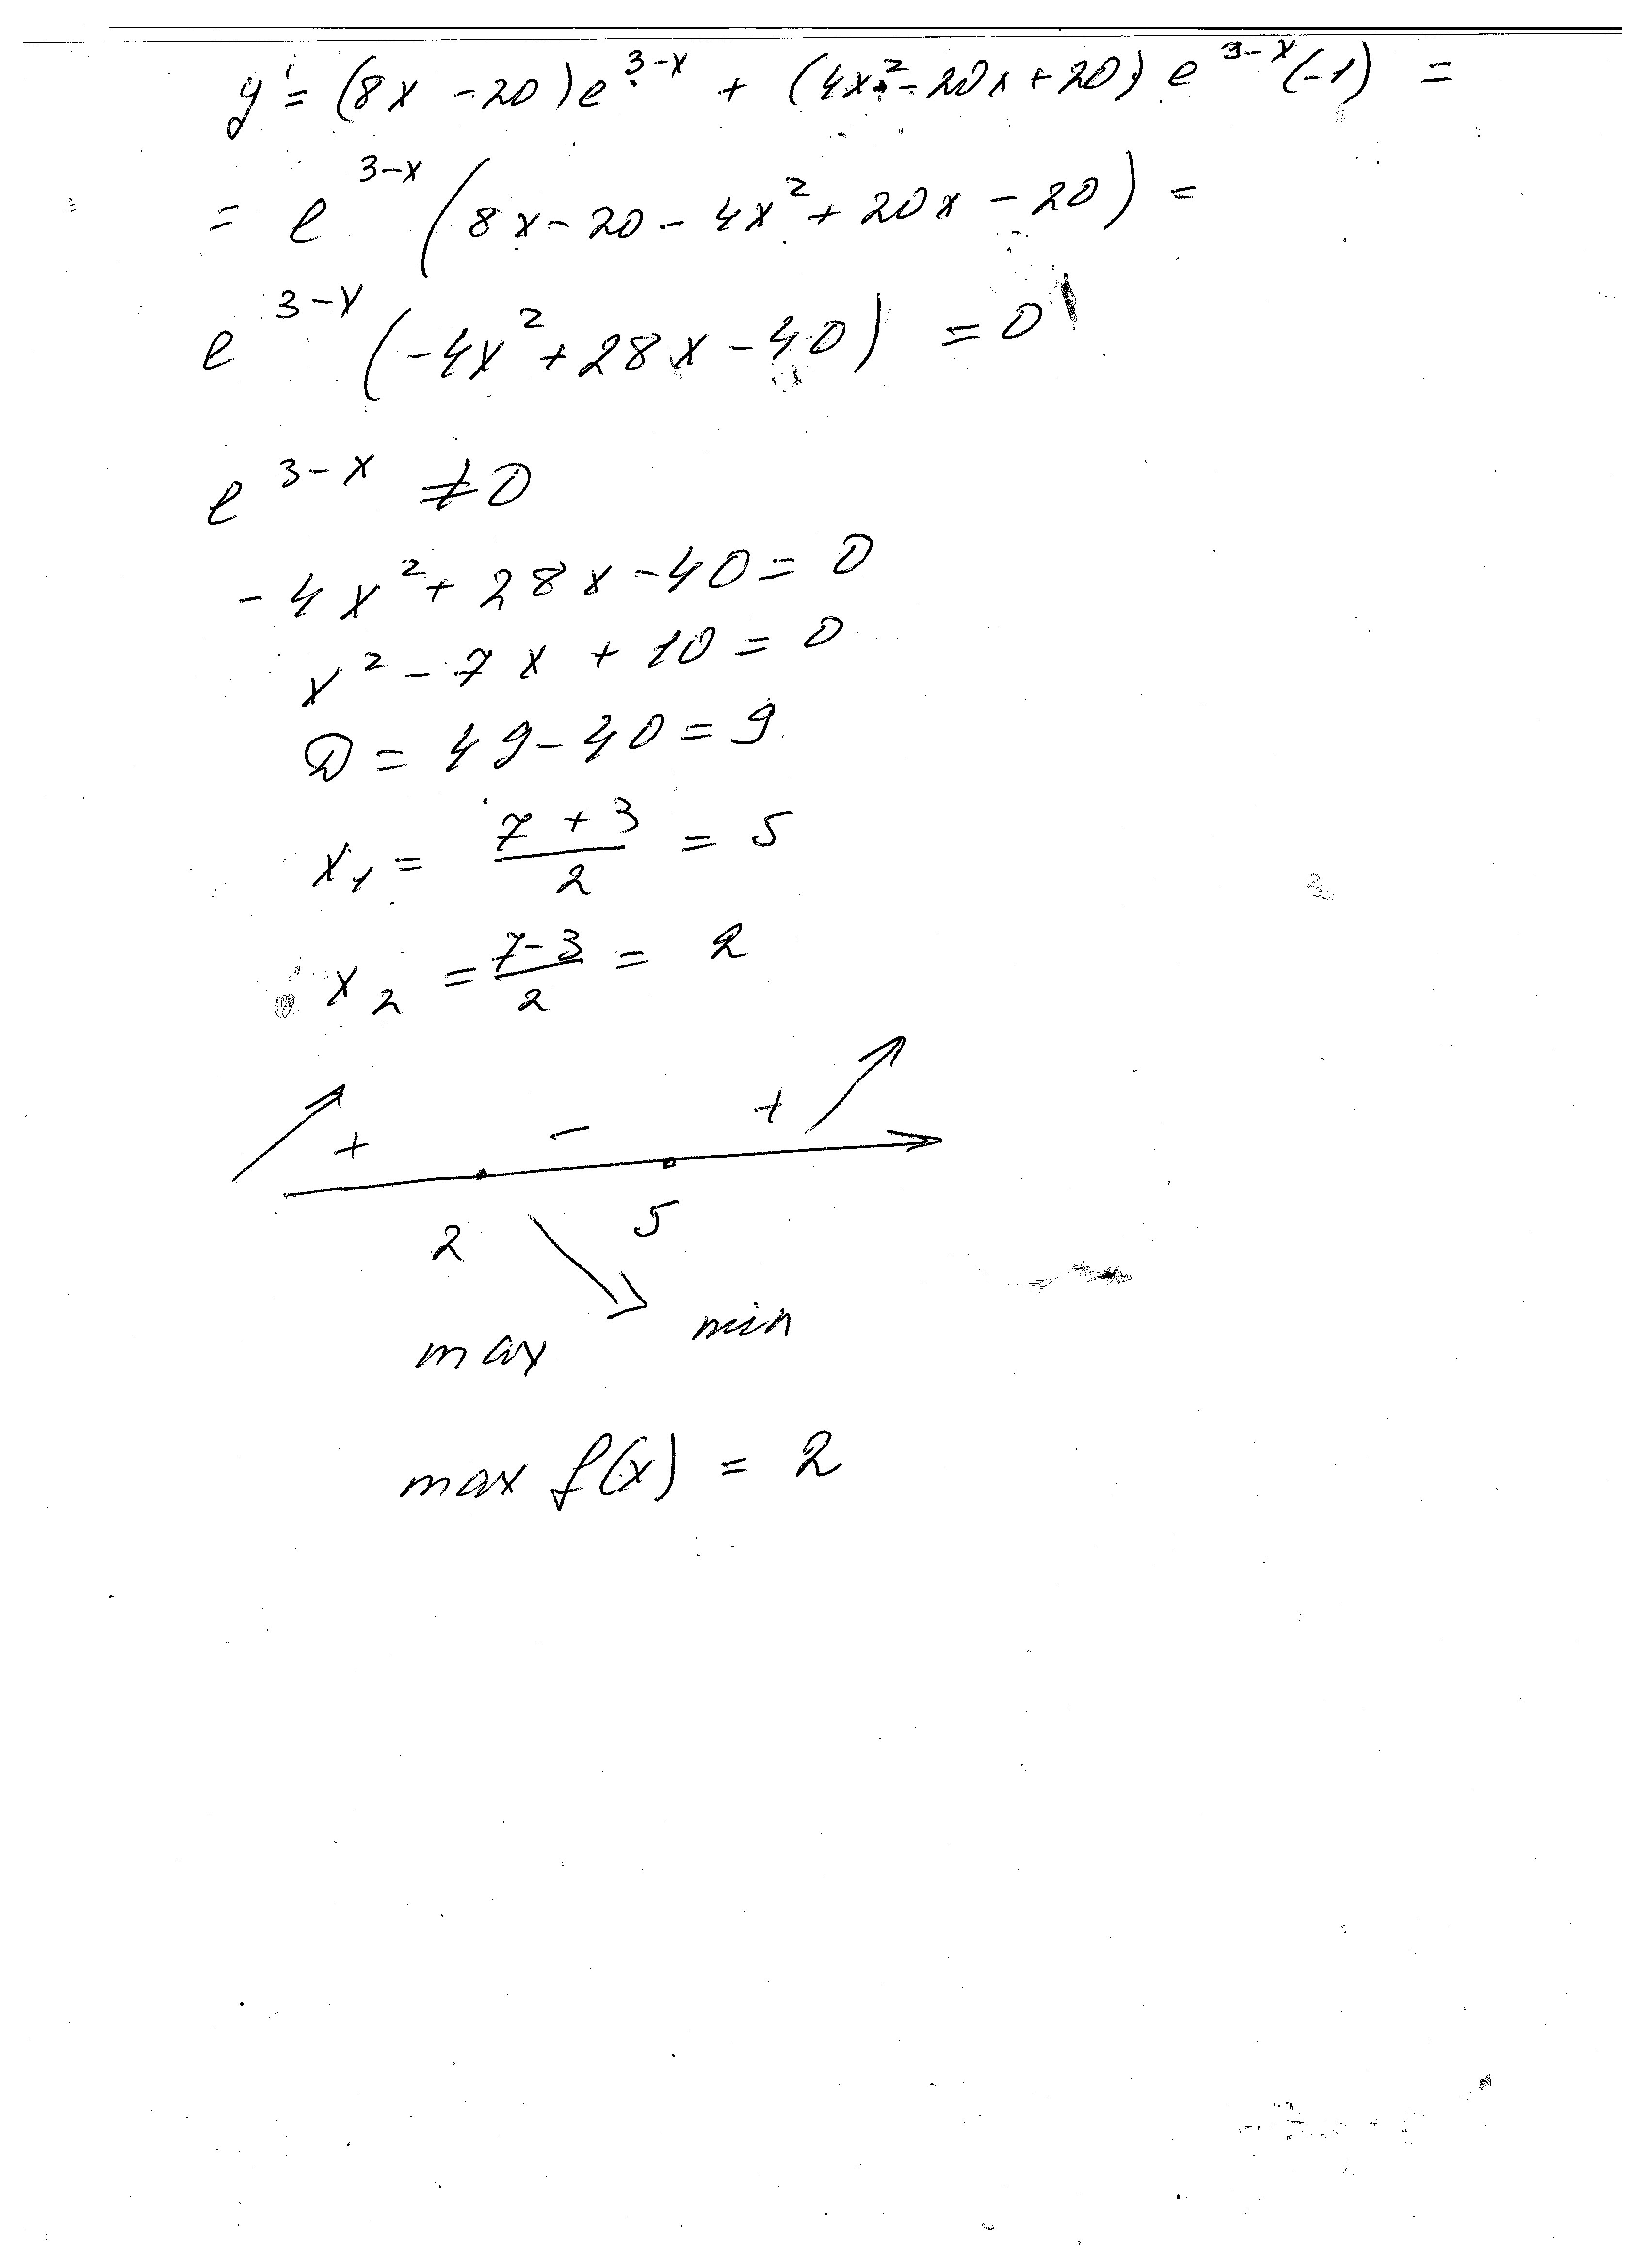 y' = (8x - 20)e^{3-x} + (4x^2 - 20x + 20) e^{3-x}(-1) =
= e^{3-x} (8x - 20 - 4x^2 + 20x - 20) =
e^{3-x} (-4x^2 + 28x - 40) = 0
e^{3-x} ≠ 0
-4x^2 + 28x - 40 = 0
x^2 - 7x + 10 = 0
D = 49 - 40 = 9
x_1 = \frac{7+3}{2} = 5
x_2 = \frac{7-3}{2} = 2
+ - +
2 5
max min
max f(x) = 2